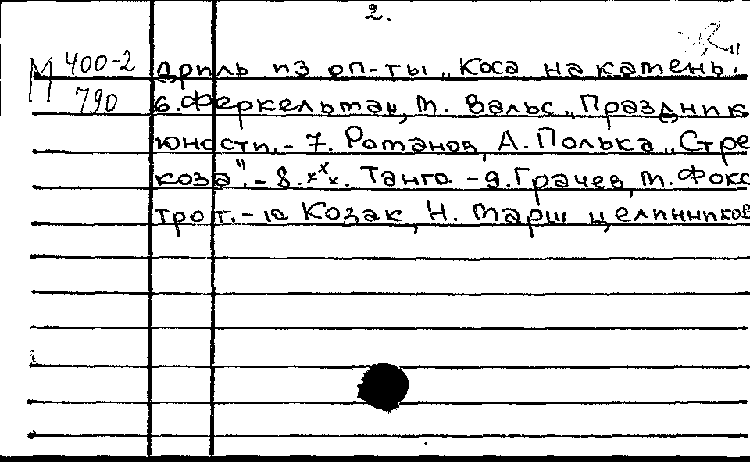 2.
М 400-2 дриль из оп-ты „Коса на камень."
790 6. Феркельман, М. Вальс „Праздник
юности. - 7. Романов, А. Полька „Стре
коза". - 8. ххх. Танго - 9. Грачев, М. Фокс
трот. - 10 Козак, Н. Марш целинников